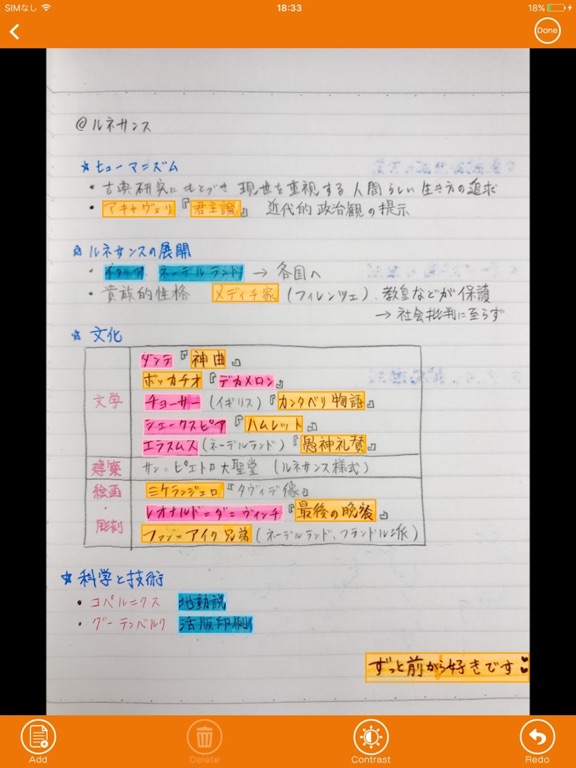 SIMなし 18:33 18%
Done
@ルネサンス
☆ヒューマニズム
・古典研究にもとづき 現世を重視する 人間らしい 生き方の追求
・マキャヴェリ『君主論』 近代的 政治観の提示
☆ルネサンスの展開
・イタリア ネーデルランド → 各国へ
・貴族的性格 メディチ家 (フィレンツェ)、教皇などが保護
→ 社会批判に至らず
☆ 文化
文学
ダンテ『神曲』
ボッカチオ『デカメロン』
チョーサー (イギリス)『カンタベリ物語』
シェークスピア『ハムレット』
エラスムス (ネーデルランド)『愚神礼賛』
建築 サン=ピエトロ大聖堂 (ルネサンス様式)
絵画・彫刻
ミケランジェロ『ダヴィデ像』
レオナルド=ダ=ヴィンチ『最後の晩餐』
ファン=アイク兄弟 (ネーデルランド、フランドル派)
☆ 科学と技術
・コペルニクス 地動説
・グーテンベルク 活版印刷
ずっと前から好きです
Add Delete Contrast Redo